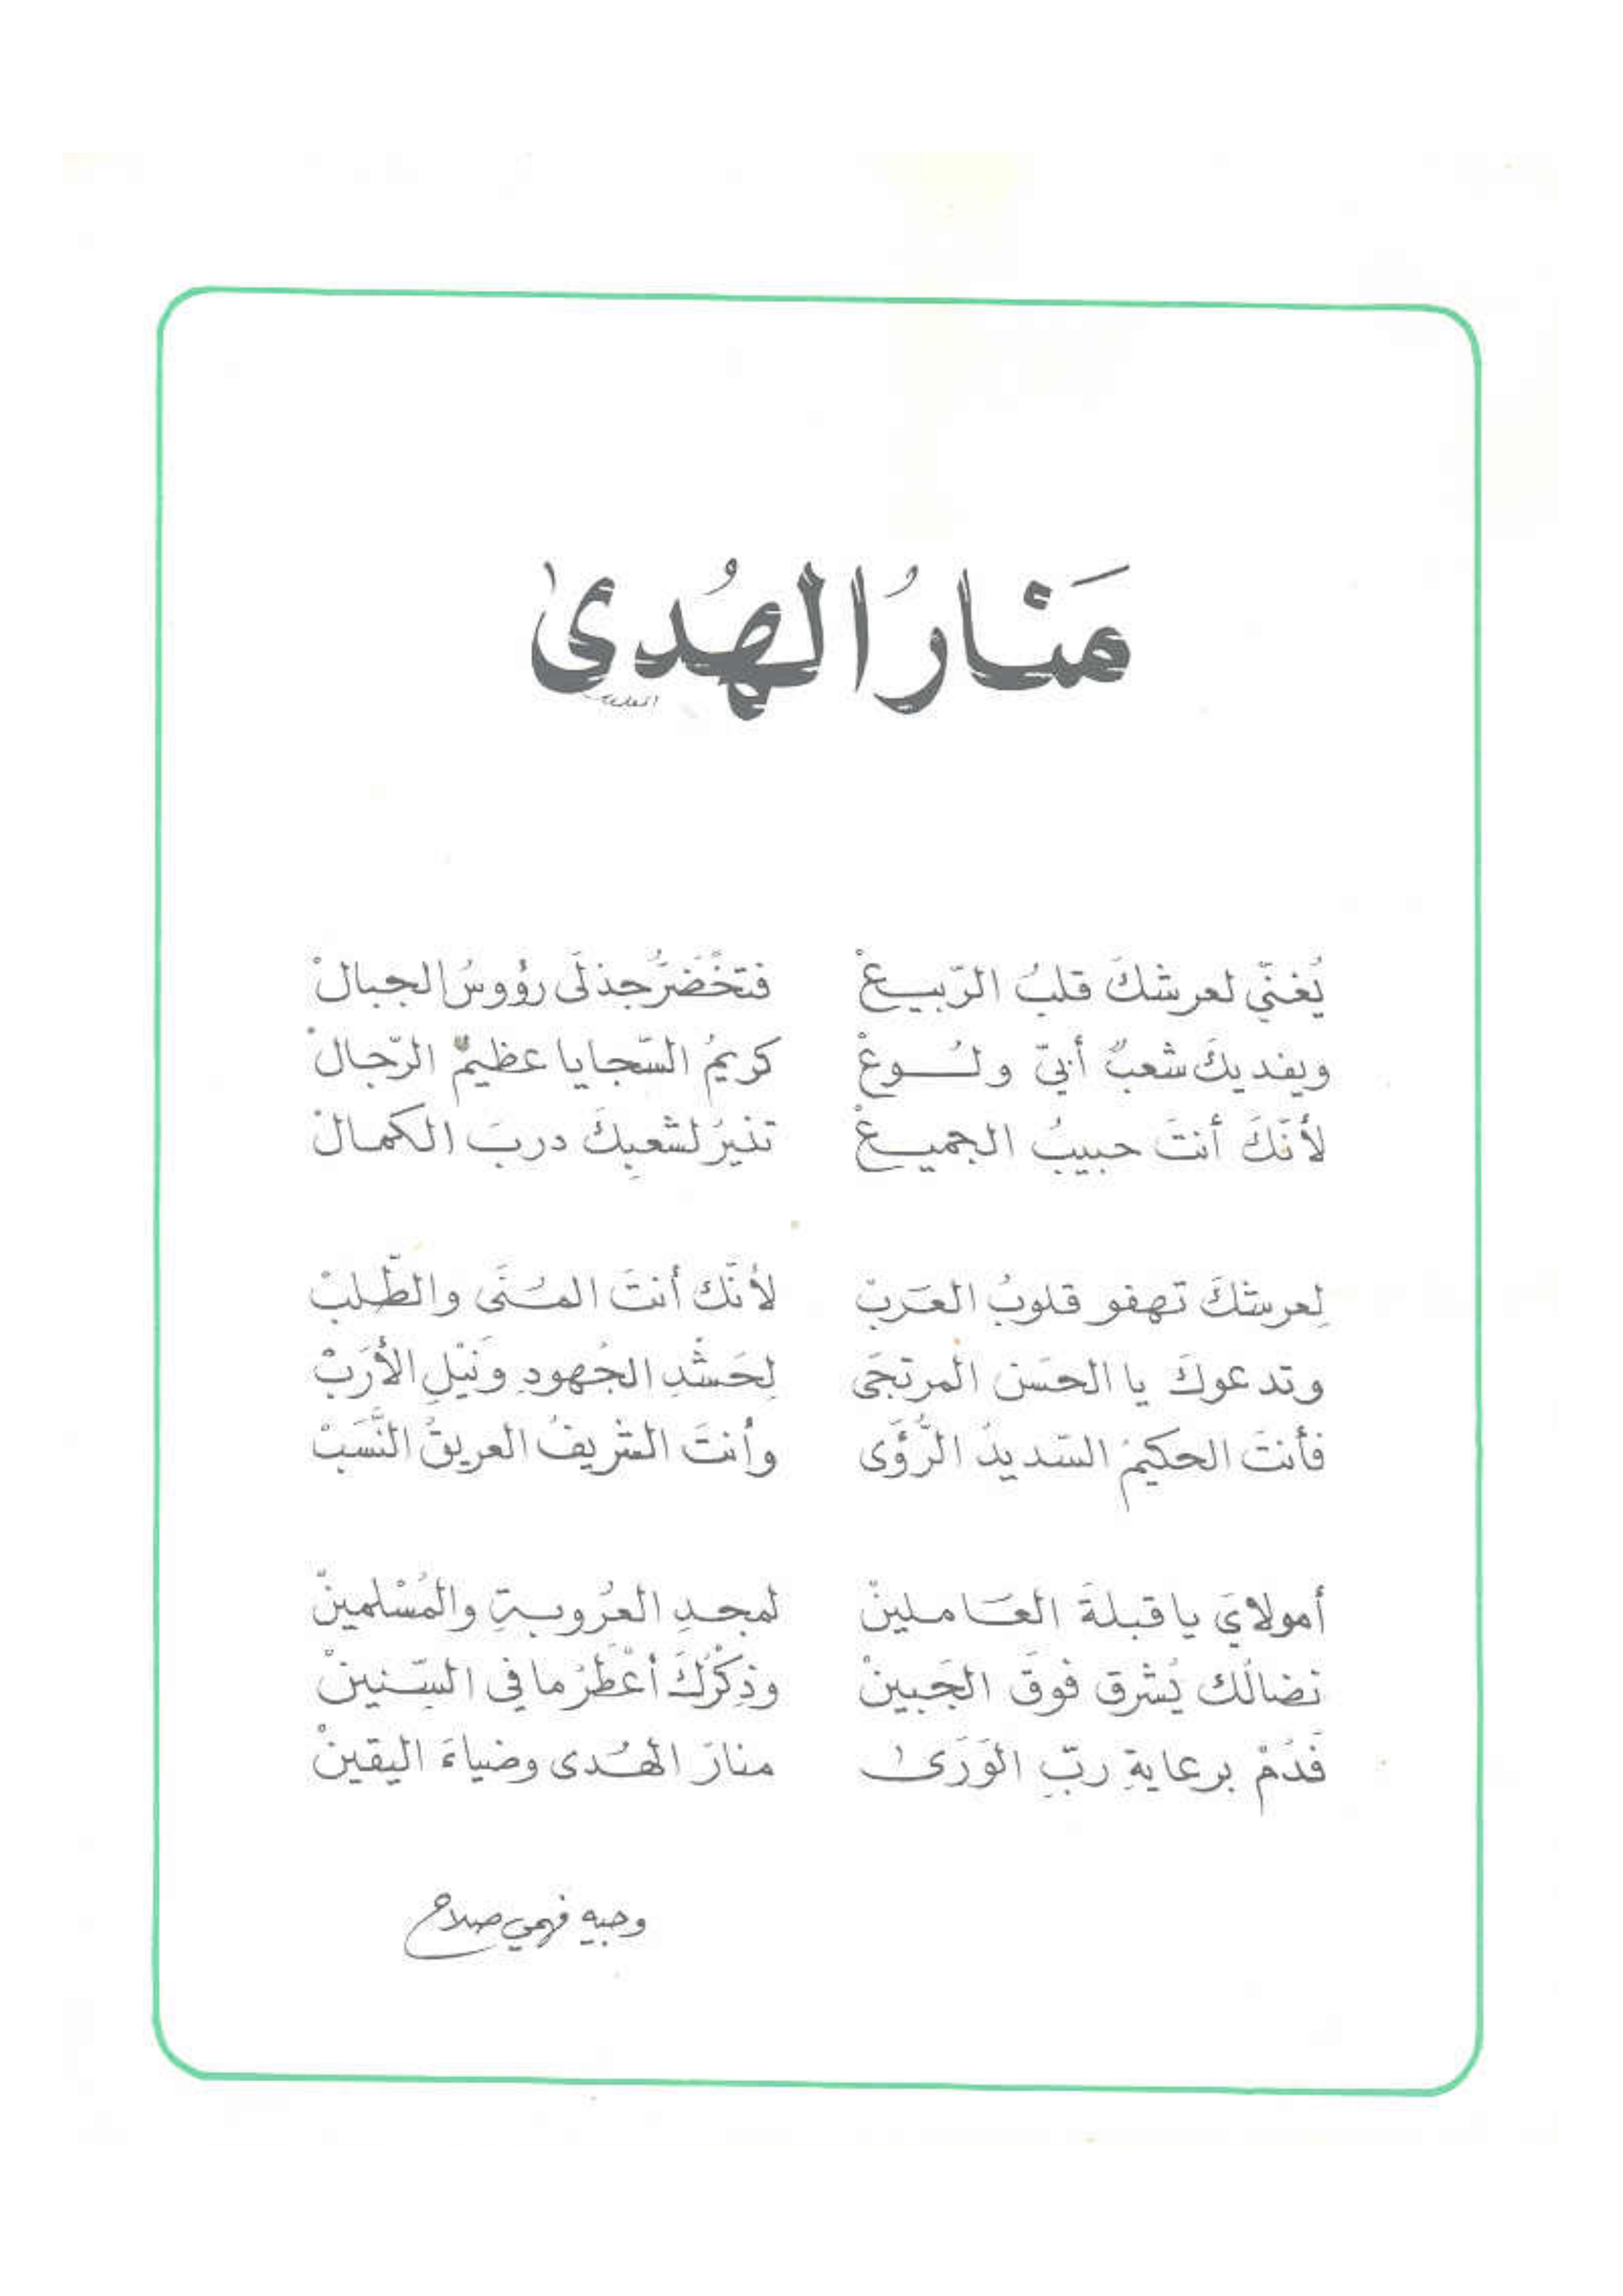 مَنَارُ الهُدىٰ
يُغنّي لعرشكَ قلبُ الرّبيعْ فتخْضَرُّ جذلَى رؤوسُ الجبالْ
ويفديكَ شعبٌ أبيّ ولُوعْ كريمُ السّجايا عظيمُ الرّجالْ
لأنّكَ أنتَ حبيبُ الجميعْ تنيرُ لشعبِكَ دربَ الكمالْ
لِعرشكَ تهفو قلوبُ العَربْ لأنّك أنتَ المُنَى والطّلبْ
وتدعوكَ يا الحسَن المرتجَى لِحَشْدِ الجُهودِ ونَيْلِ الأرَبْ
فأنتَ الحكيمُ السّديدُ الرُّؤَى وأنتَ الشّريفُ العريقُ النَّسَبْ
أمولايَ يا قبلةَ العَاملينْ لمجدِ العُروبةِ والمُسْلمينْ
نضالُك يُشرق فوقَ الجَبينْ وذِكْرُكَ أعْطَرُ ما في السّنينْ
فَدُمْ برعايةِ ربّ الوَرَىٰ منارَ الهُدى وضياءَ اليقينْ
وجيه فهمي صلاح